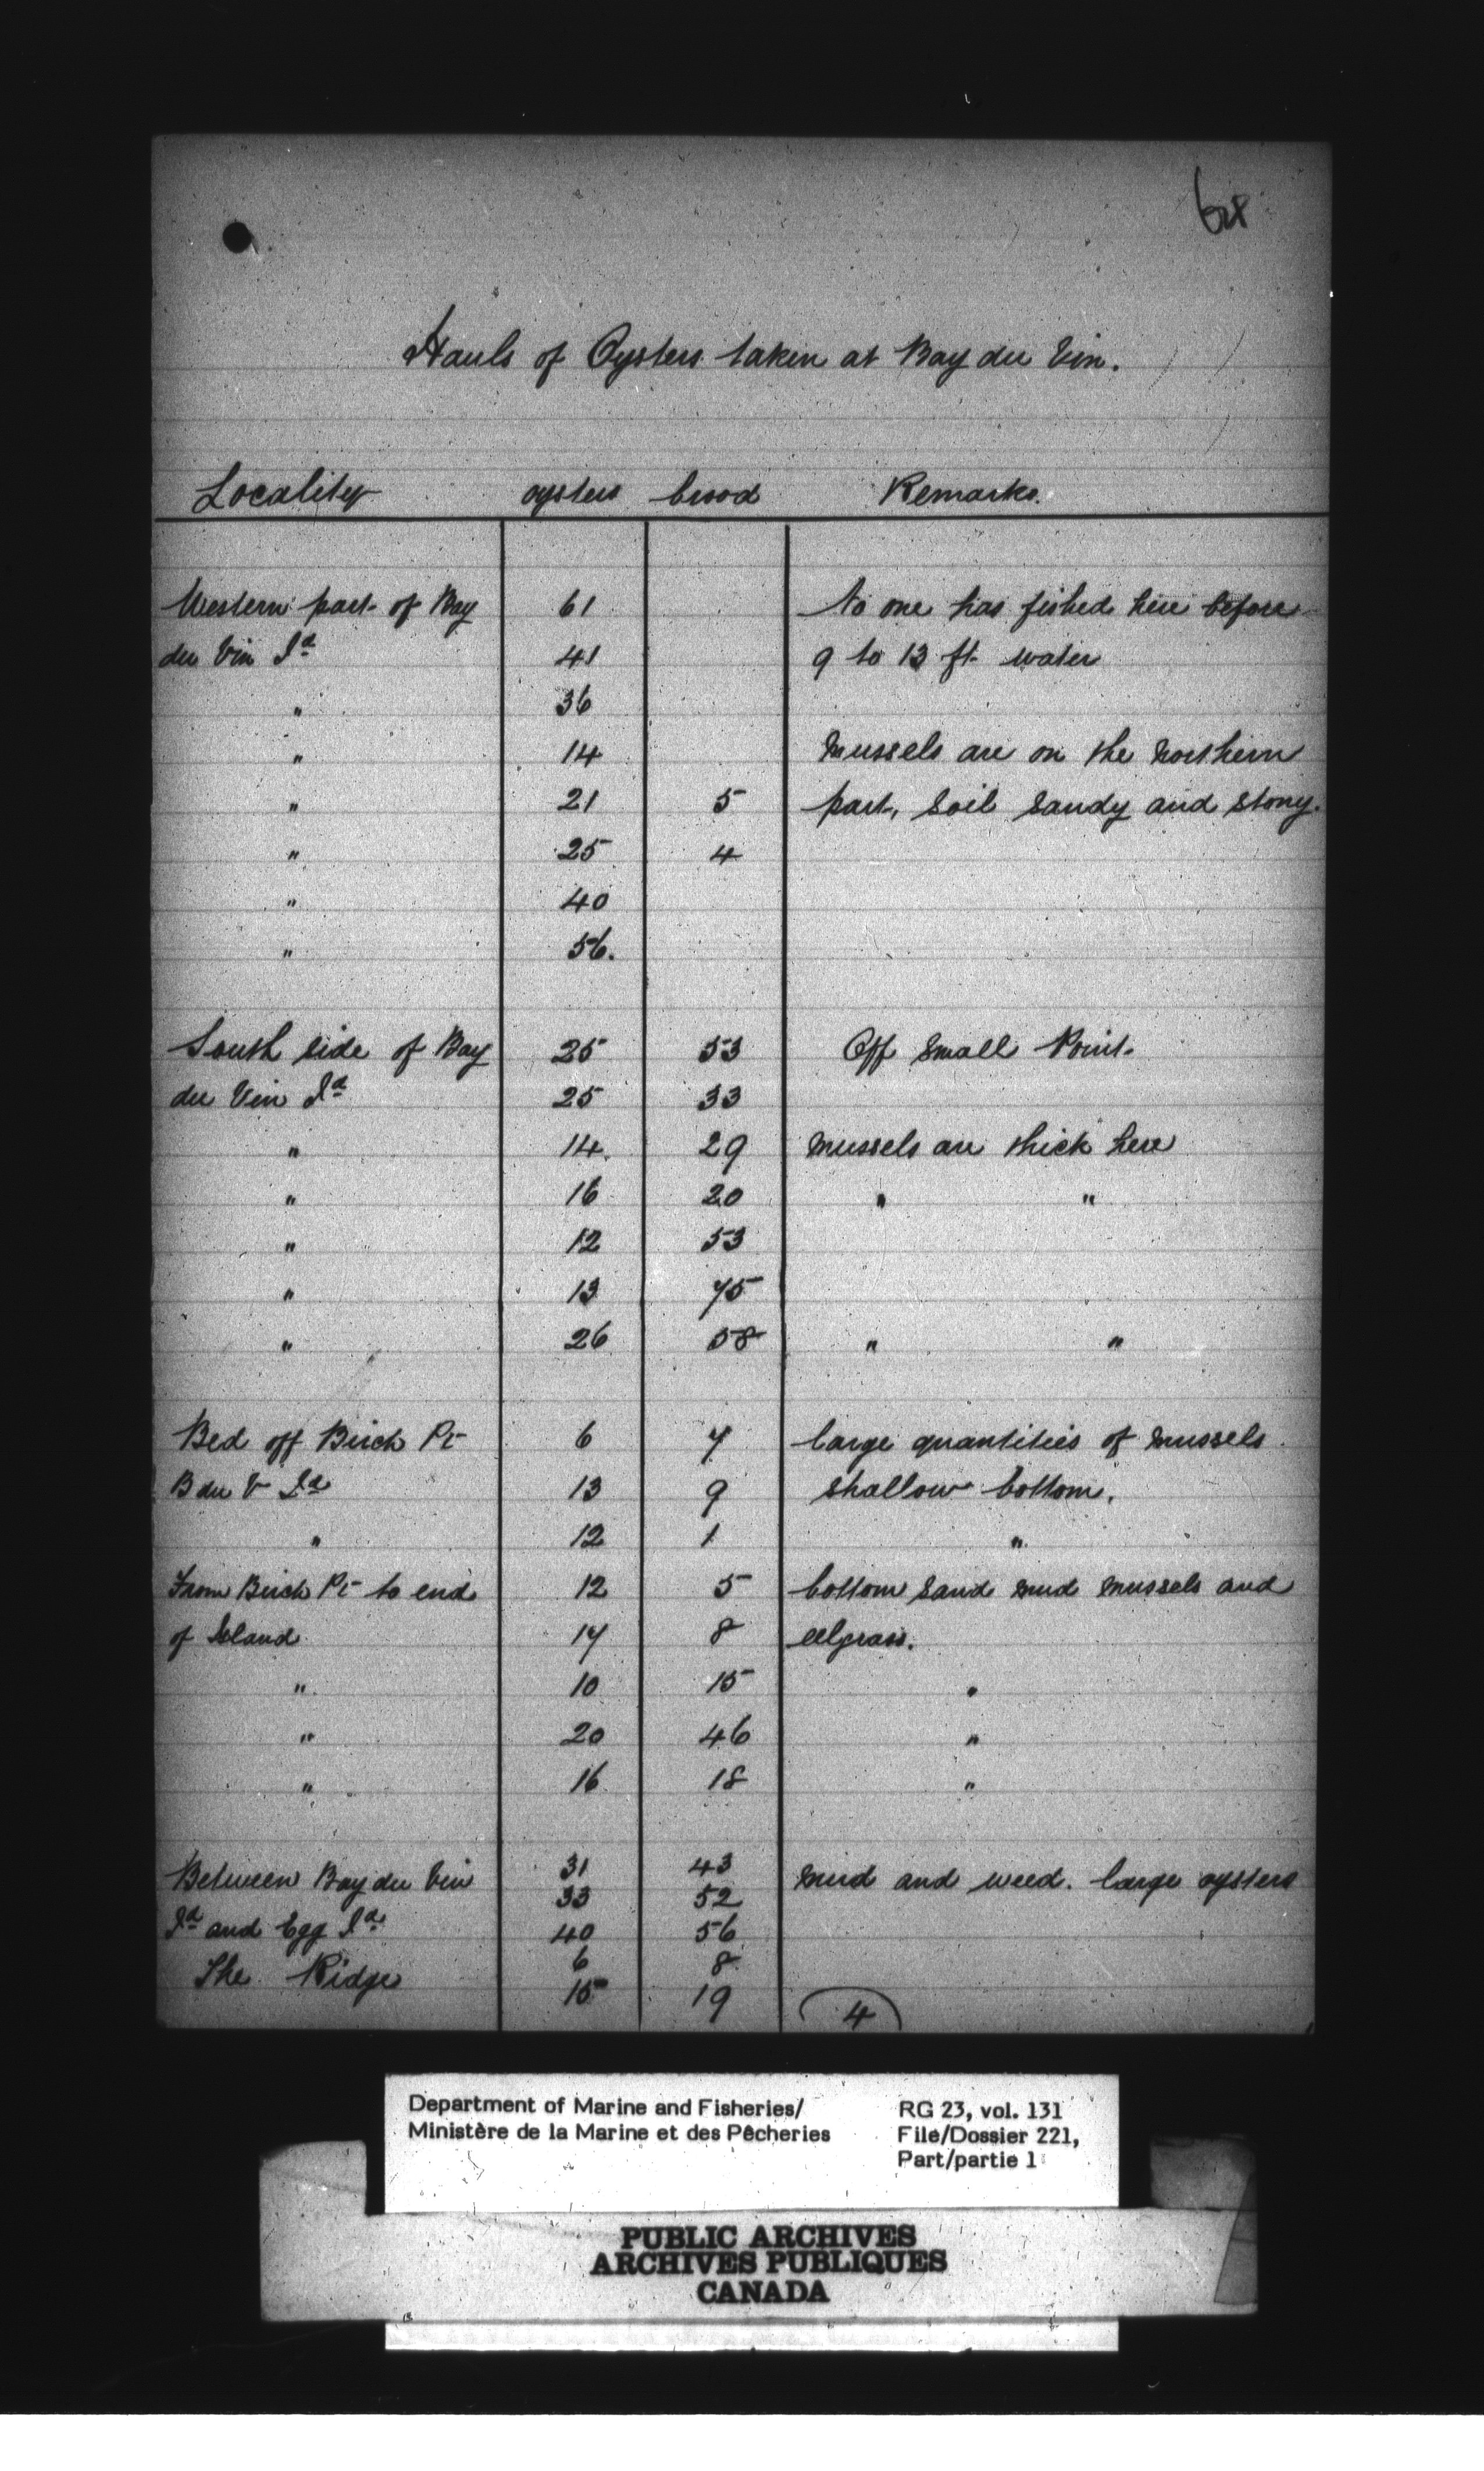 Hauls of Oysters taken at Bay du Vin.
Locality oysters brood Remarks.
Western part of Bay 61 No one has fished here before
du Vin Id 41 9 to 13 ft. water
" 36
" 14 Mussels are on the Northern
" 21 5 part, Soil Sandy and Stony.
" 25 4
" 40
" 56.
South side of Bay 25 53 Off Small Point.
du Vin Id 25 33
" 14. 29 Mussels are thick here
" 16 20 " "
" 12 53
" 13 75
" 26 58 " "
Bed off Birch Pt 6 7 large quantities of Mussels
B du V Id 13 9 Shallow bottom.
" 12 1 "
From Birch Pt to end 12 5 bottom Sand Mud Mussels and
of Island 17 8 eelgrass.
" 10 15 "
" 20 46 "
" 16 18 "
Between Bay du Vin 31 43 Mud and weed. large oysters
33 52
Id and Egg Id 40 56
The Ridge 6 8
15 19 4
Department of Marine and Fisheries/ RG 23, vol. 131
Ministère de la Marine et des Pêcheries File/Dossier 221,
Part/partie 1
PUBLIC ARCHIVES
ARCHIVES PUBLIQUES
CANADA